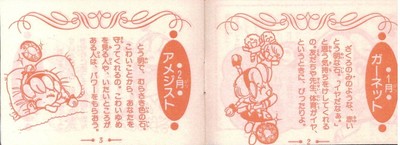 ●1月●
ガーネット
ざくろのみのような、赤い
とう明な石。「イヤだなぁ」
と思う気持ちをけしてくれる
の。友だちや先生、体育がイヤ、
というときに、ぴったりよ。
2
●2月●
アメジスト
とう明な、むらさき色の石。
こわいことから、あなたを
守ってくれるの。こわいゆめ
を見る人や、いたいところが
ある人は、パワーをもらおう。
3